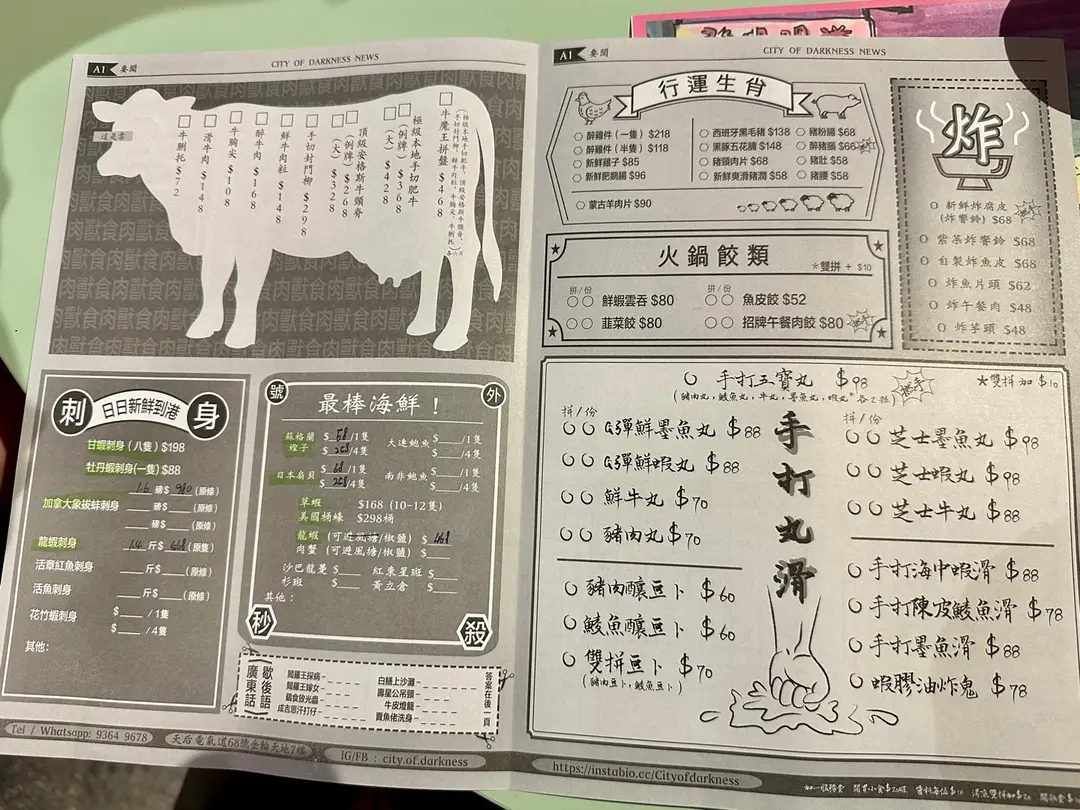 A1 要聞
CITY OF DARKNESS NEWS
牛魔王拼盤 $468
(極級本地手切肥牛，頂級安格斯牛頸脊，
手切封門柳，鮮牛肉粒，牛胸尖，牛脷托)
極級本地手切肥牛
(例牌) $368
(大) $428
頂級安格斯牛頸脊
(例牌) $268
(大) $328
手切封門柳 $298
鮮牛肉粒 $148
醉牛肉 $168
牛胸尖 $108
滑牛肉 $148
牛脷托 $72
刺身
日日新鮮到港
甘蝦刺身(八隻) $198
牡丹蝦刺身(一隻) $88
1.6 磅$ 980 (原條)
加拿大象拔蚌刺身 磅$ (原條)
磅$ (原條)
龍蝦刺身 1.4 斤$ 668 (原隻)
活章紅魚刺身 斤$ (原條)
活魚刺身 斤$ (原條)
花竹蝦刺身 $ /1隻
$ /4隻
其他:
號外
最棒海鮮！
蘇格蘭蟶子 $ 58 /1隻
$ 208 /4隻
大連鮑魚 $ /1隻
$ /4隻
日本扇貝 $ 68 /1隻
$ 258 /4隻
南非鮑魚 $ /1隻
$ /4隻
草蝦 $168 (10-12隻)
美國桶蠔 $298桶
龍蝦 (可避風塘/椒鹽) $ 468
肉蟹 (可避風塘/椒鹽) $
沙巴龍躉 $
紅東星斑 $
杉斑 $
黃立倉 $
其他：
秒殺
廣東話歇後語
閻羅王探病
閻羅王嫁女
雞食放光蟲
成吉思汗打仔
白鱔上沙灘
壽星公吊頸
牛皮燈籠
賣魚佬洗身
答案在後一頁
Tel / Whatsapp: 9364 9678
天后電氣道68號金輪天地7樓
IG/FB : city.of.darkness
A1 要聞
CITY OF DARKNESS NEWS
行運生肖
醉雞件 (一隻) $218
醉雞件 (半隻) $118
新鮮雞子 $85
新鮮肥鵝腸 $96
西班牙黑毛豬 $138
黑豚五花腩 $148
豬頸肉片 $68
新鮮爽滑豬潤 $58
豬粉腸 $68
醉豬腦 $66
豬肚 $58
豬腰 $58
蒙古羊肉片 $90
炸
新鮮炸腐皮
(炸響鈴) $68
紫菜炸響鈴 $68
自製炸魚皮 $68
炸魚片頭 $62
炸午餐肉 $48
炸芋頭 $48
火鍋餃類
*雙拼 + $10
拼/份
鮮蝦雲吞 $80
韮菜餃 $80
拼/份
魚皮餃 $52
招牌午餐肉餃 $80
手打五寶丸 $98
(豬肉丸，鯪魚丸，牛丸，墨魚丸，蝦丸 各2粒)
★雙拼加 $10
手打丸滑
拼/份
QQ彈鮮墨魚丸 $88
QQ彈鮮蝦丸 $88
鮮牛丸 $70
豬肉丸 $70
豬肉釀豆卜 $60
鯪魚釀豆卜 $60
雙拼豆卜 $70
(豬肉豆卜，鯪魚豆卜)
拼/份
芝士墨魚丸 $98
芝士蝦丸 $98
芝士牛丸 $88
手打海中蝦滑 $88
手打陳皮鯪魚滑 $78
手打墨魚滑 $88
蝦膠油炸鬼 $78
https://instabio.cc/Cityofdarkness
加一服務費